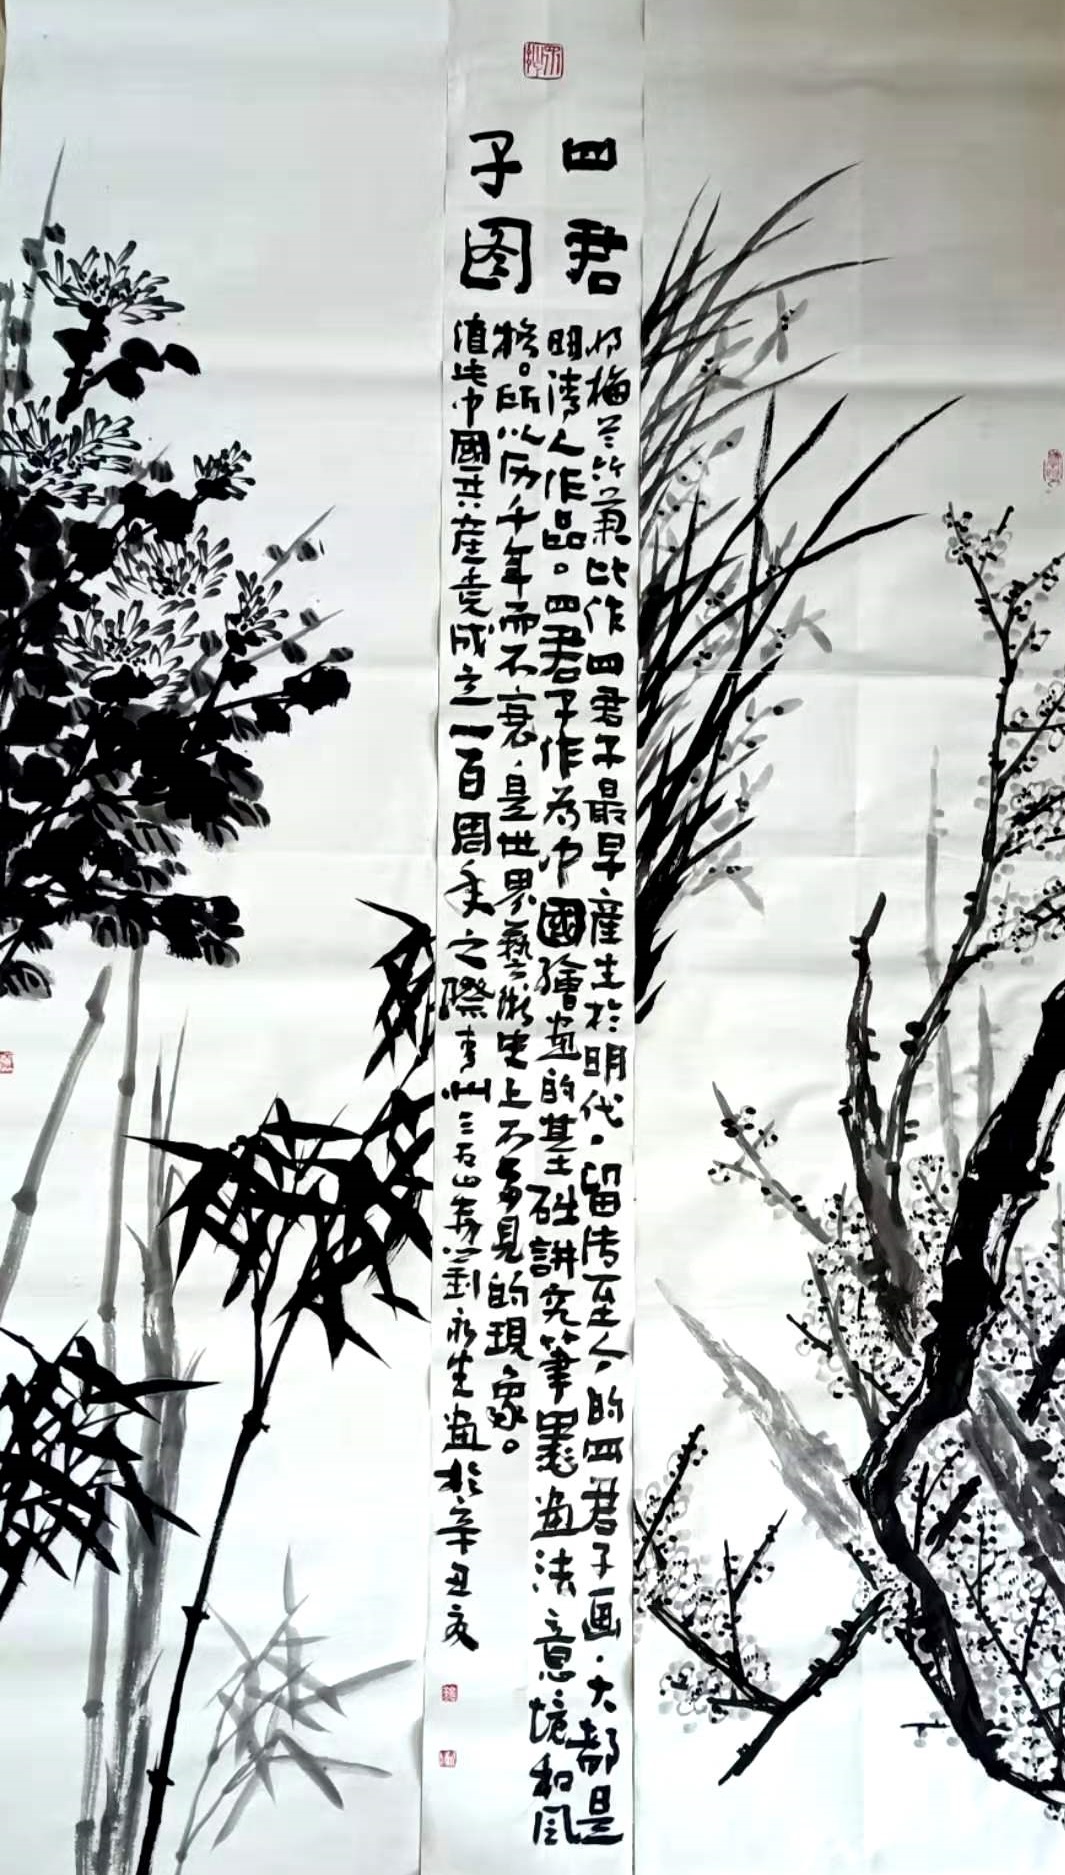 四君
子图
将梅兰竹菊比作四君子最早產生於明代，留传至今，的四君子画，大都是
明清人作品。四君子作为中國繪畫的基础講究筆墨畫法意境和風
格。所以历千年而不衰，是世界藝術史上不多見的現象。
值此中國共產党成立一百周年之際青州三石山房劉永生畫於辛丑夏